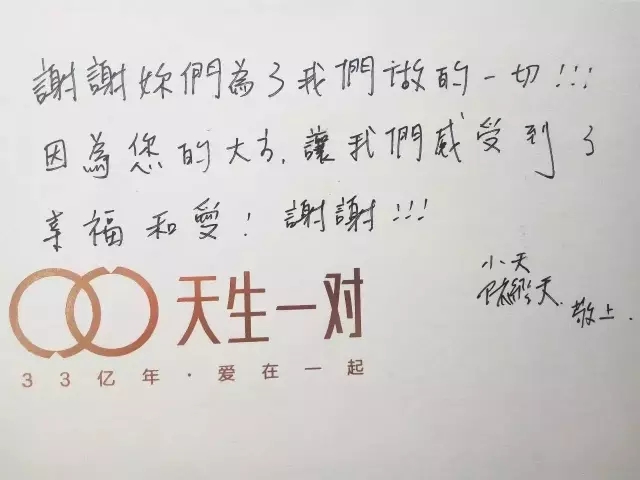 謝謝妳們為了我們做的一切!!!
因為您的大方,讓我們感受到了
幸福和愛! 謝謝!!!
小天
敬上.
天生一对
33亿年·爱在一起